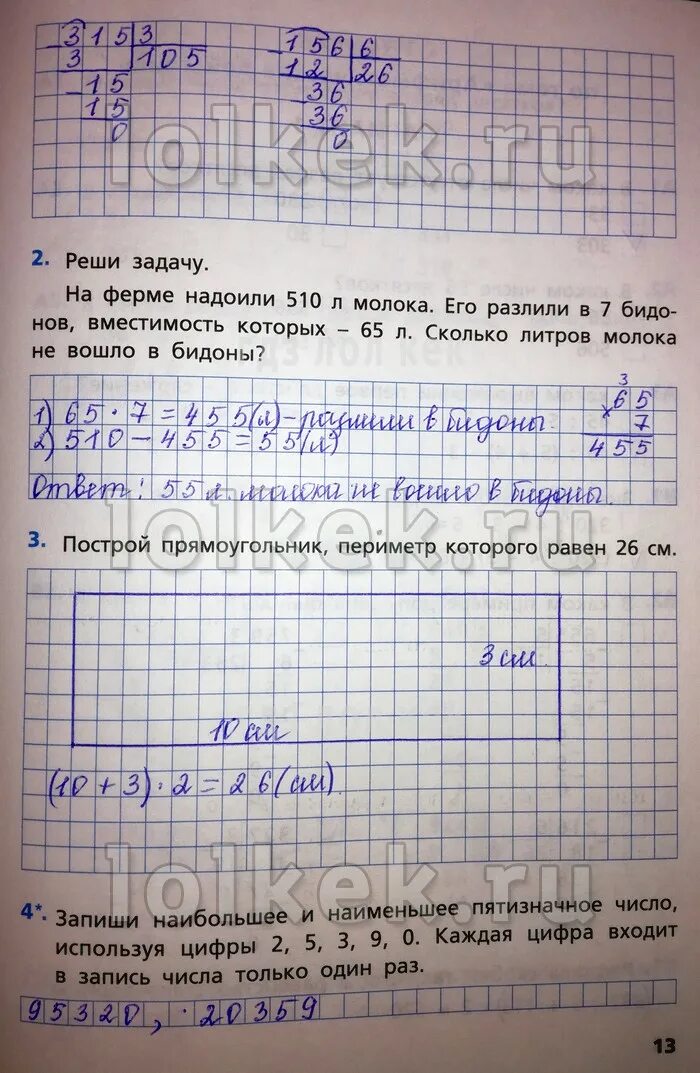 315 3
3 105
-15
15
0
-156 6
12 26
-36
36
0
lolkek.ru
2. Реши задачу.
На ферме надоили 510 л молока. Его разлили в 7 бидо-
нов, вместимость которых – 65 л. Сколько литров молока
не вошло в бидоны?
где лол кек
1) 65 · 7 = 455 (л) - разлили в бидоны.
2) 510 - 455 = 55 (л)
3
65
× 7
455
Ответ: 55 л. молока не вошло в бидоны.
lolkek.ru
3. Построй прямоугольник, периметр которого равен 26 см.
3 см
10 см
(10 + 3) · 2 = 26 (см)
lolkek.ru
4*. Запиши наибольшее и наименьшее пятизначное число,
используя цифры 2, 5, 3, 9, 0. Каждая цифра входит
в запись числа только один раз.
95320, 20359
13